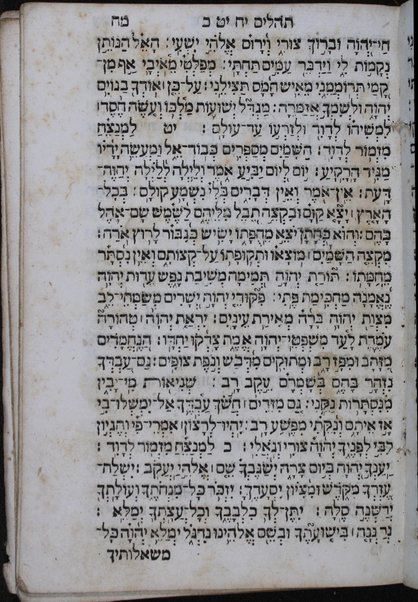 תהלים יח יט כ מח
חי־יְהוָה וּבָרוּךְ צוּרִי וְיָרוּם אֱלֹהֵי יִשְׁעִי׃ הָאֵל הַנּוֹתֵן
נְקָמוֹת לִי וַיַּדְבֵּר עַמִּים תַּחְתָּי׃ מְפַלְטִי מֵאֹיְבָי אַף מִן־
קָמַי תְּרוֹמְמֵנִי מֵאִישׁ חָמָס תַּצִּילֵנִי׃ עַל־כֵּן אוֹדְךָ בַגּוֹיִם
יְהוָה וּלְשִׁמְךָ אֲזַמֵּרָה׃ מַגְדִּל יְשׁוּעוֹת מַלְכּוֹ וְעֹשֶׂה חֶסֶד׀
לִמְשִׁיחוֹ לְדָוִד וּלְזַרְעוֹ עַד־עוֹלָם׃ יט לַמְנַצֵּחַ
מִזְמוֹר לְדָוִד׃ הַשָּׁמַיִם מְסַפְּרִים כְּבוֹד־אֵל וּמַעֲשֵׂה יָדָיו
מַגִּיד הָרָקִיעַ׃ יוֹם לְיוֹם יַבִּיעַ אֹמֶר וְלַיְלָה לְּלַיְלָה יְחַוֶּה־
דָּעַת׃ אֵין־אֹמֶר וְאֵין דְּבָרִים בְּלִי נִשְׁמָע קוֹלָם׃ בְּכָל־
הָאָרֶץ׀ יָצָא קַוָּם וּבִקְצֵה תֵבֵל מִלֵּיהֶם לַשֶּׁמֶשׁ שָׂם־אֹהֶל
בָּהֶם׃ וְהוּא כְּחָתָן יֹצֵא מֵחֻפָּתוֹ יָשִׂישׂ כְּגִבּוֹר לָרוּץ אֹרַח׃
מִקְצֵה הַשָּׁמַיִם׀ מוֹצָאוֹ וּתְקוּפָתוֹ עַל־קְצוֹתָם וְאֵין נִסְתָּר
מֵחַמָּתוֹ׃ תּוֹרַת יְהוָה תְּמִימָה מְשִׁיבַת נָפֶשׁ עֵדוּת יְהוָה
נֶאֱמָנָה מַחְכִּימַת פֶּתִי׃ פִּקּוּדֵי יְהוָה יְשָׁרִים מְשַׂמְּחֵי־לֵב
מִצְוַת יְהוָה בָּרָה מְאִירַת עֵינָיִם׃ יִרְאַת יְהוָה׀ טְהוֹרָה
עוֹמֶדֶת לָעַד מִשְׁפְּטֵי־יְהוָה אֱמֶת צָדְקוּ יַחְדָּו׃ הַנֶּחֱמָדִים
מִזָּהָב וּמִפַּז רָב וּמְתוּקִים מִדְּבַשׁ וְנֹפֶת צוּפִים׃ גַּם־עַבְדְּךָ
נִזְהָר בָּהֶם בְּשָׁמְרָם עֵקֶב רָב׃ שְׁגִיאוֹת מִי־יָבִין
מִנִּסְתָּרוֹת נַקֵּנִי׃ גַּם מִזֵּדִים׀ חֲשֹׂךְ עַבְדֶּךָ אַל־יִמְשְׁלוּ־בִי
אָז אֵיתָם וְנִקֵּתִי מִפֶּשַׁע רָב׃ יִהְיוּ־לְרָצוֹן׀ אִמְרֵי־פִי וְהֶגְיוֹן
לִבִּי לְפָנֶיךָ יְהוָה צוּרִי וְגֹאֲלִי׃ כ לַמְנַצֵּחַ מִזְמוֹר לְדָוִד׃
יַעַנְךָ יְהוָה בְּיוֹם צָרָה יְשַׂגֶּבְךָ שֵׁם׀ אֱלֹהֵי יַעֲקֹב׃ יִשְׁלַח־
עֶזְרְךָ מִקֹּדֶשׁ וּמִצִּיּוֹן יִסְעָדֶךָּ׃ יִזְכֹּר כָּל־מִנְחֹתֶךָ וְעוֹלָתְךָ
יְדַשְּׁנֶה סֶלָה׃ יִתֶּן־לְךָ כִלְבָבֶךָ וְכָל־עֲצָתְךָ יְמַלֵּא׃
נְרַנְּנָה׀ בִּישׁוּעָתֶךָ וּבְשֵׁם אֱלֹהֵינוּ נִדְגֹּל יְמַלֵּא יְהוָה כָּל־
משאלותיך